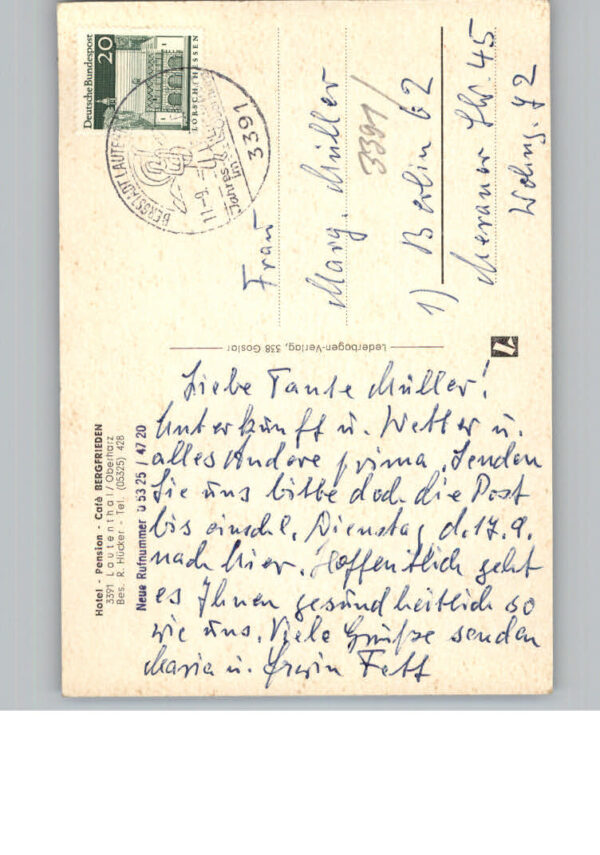 Deutsche Bundespost
20
LORSCH/HESSEN
BERGSTADT LAUTE
11.-9.
Jahres
3391
Frau
Marg. Müller
3391/
1) Berlin 62
Meraner Str. 45
Wohng. 72
Lederbogen-Verlag, 338 Goslar
Hotel - Pension - Café BERGFRIEDEN
3391 Lautenthal/Oberharz
Bes. R. Hücker - Tel. (05325) 428
Neue Rufnummer 0 53 25 / 47 20
Liebe Tante Müller!
Unterkunft u. Wetter u.
alles Andere prima. Senden
Sie uns bitte doch die Post
bis einschl. Dienstag d. 17.9.
nach hier. Hoffentlich geht
es Ihnen gesundheitlich so
wie uns. Viele Grüße senden
Maria u. Erwin Fett